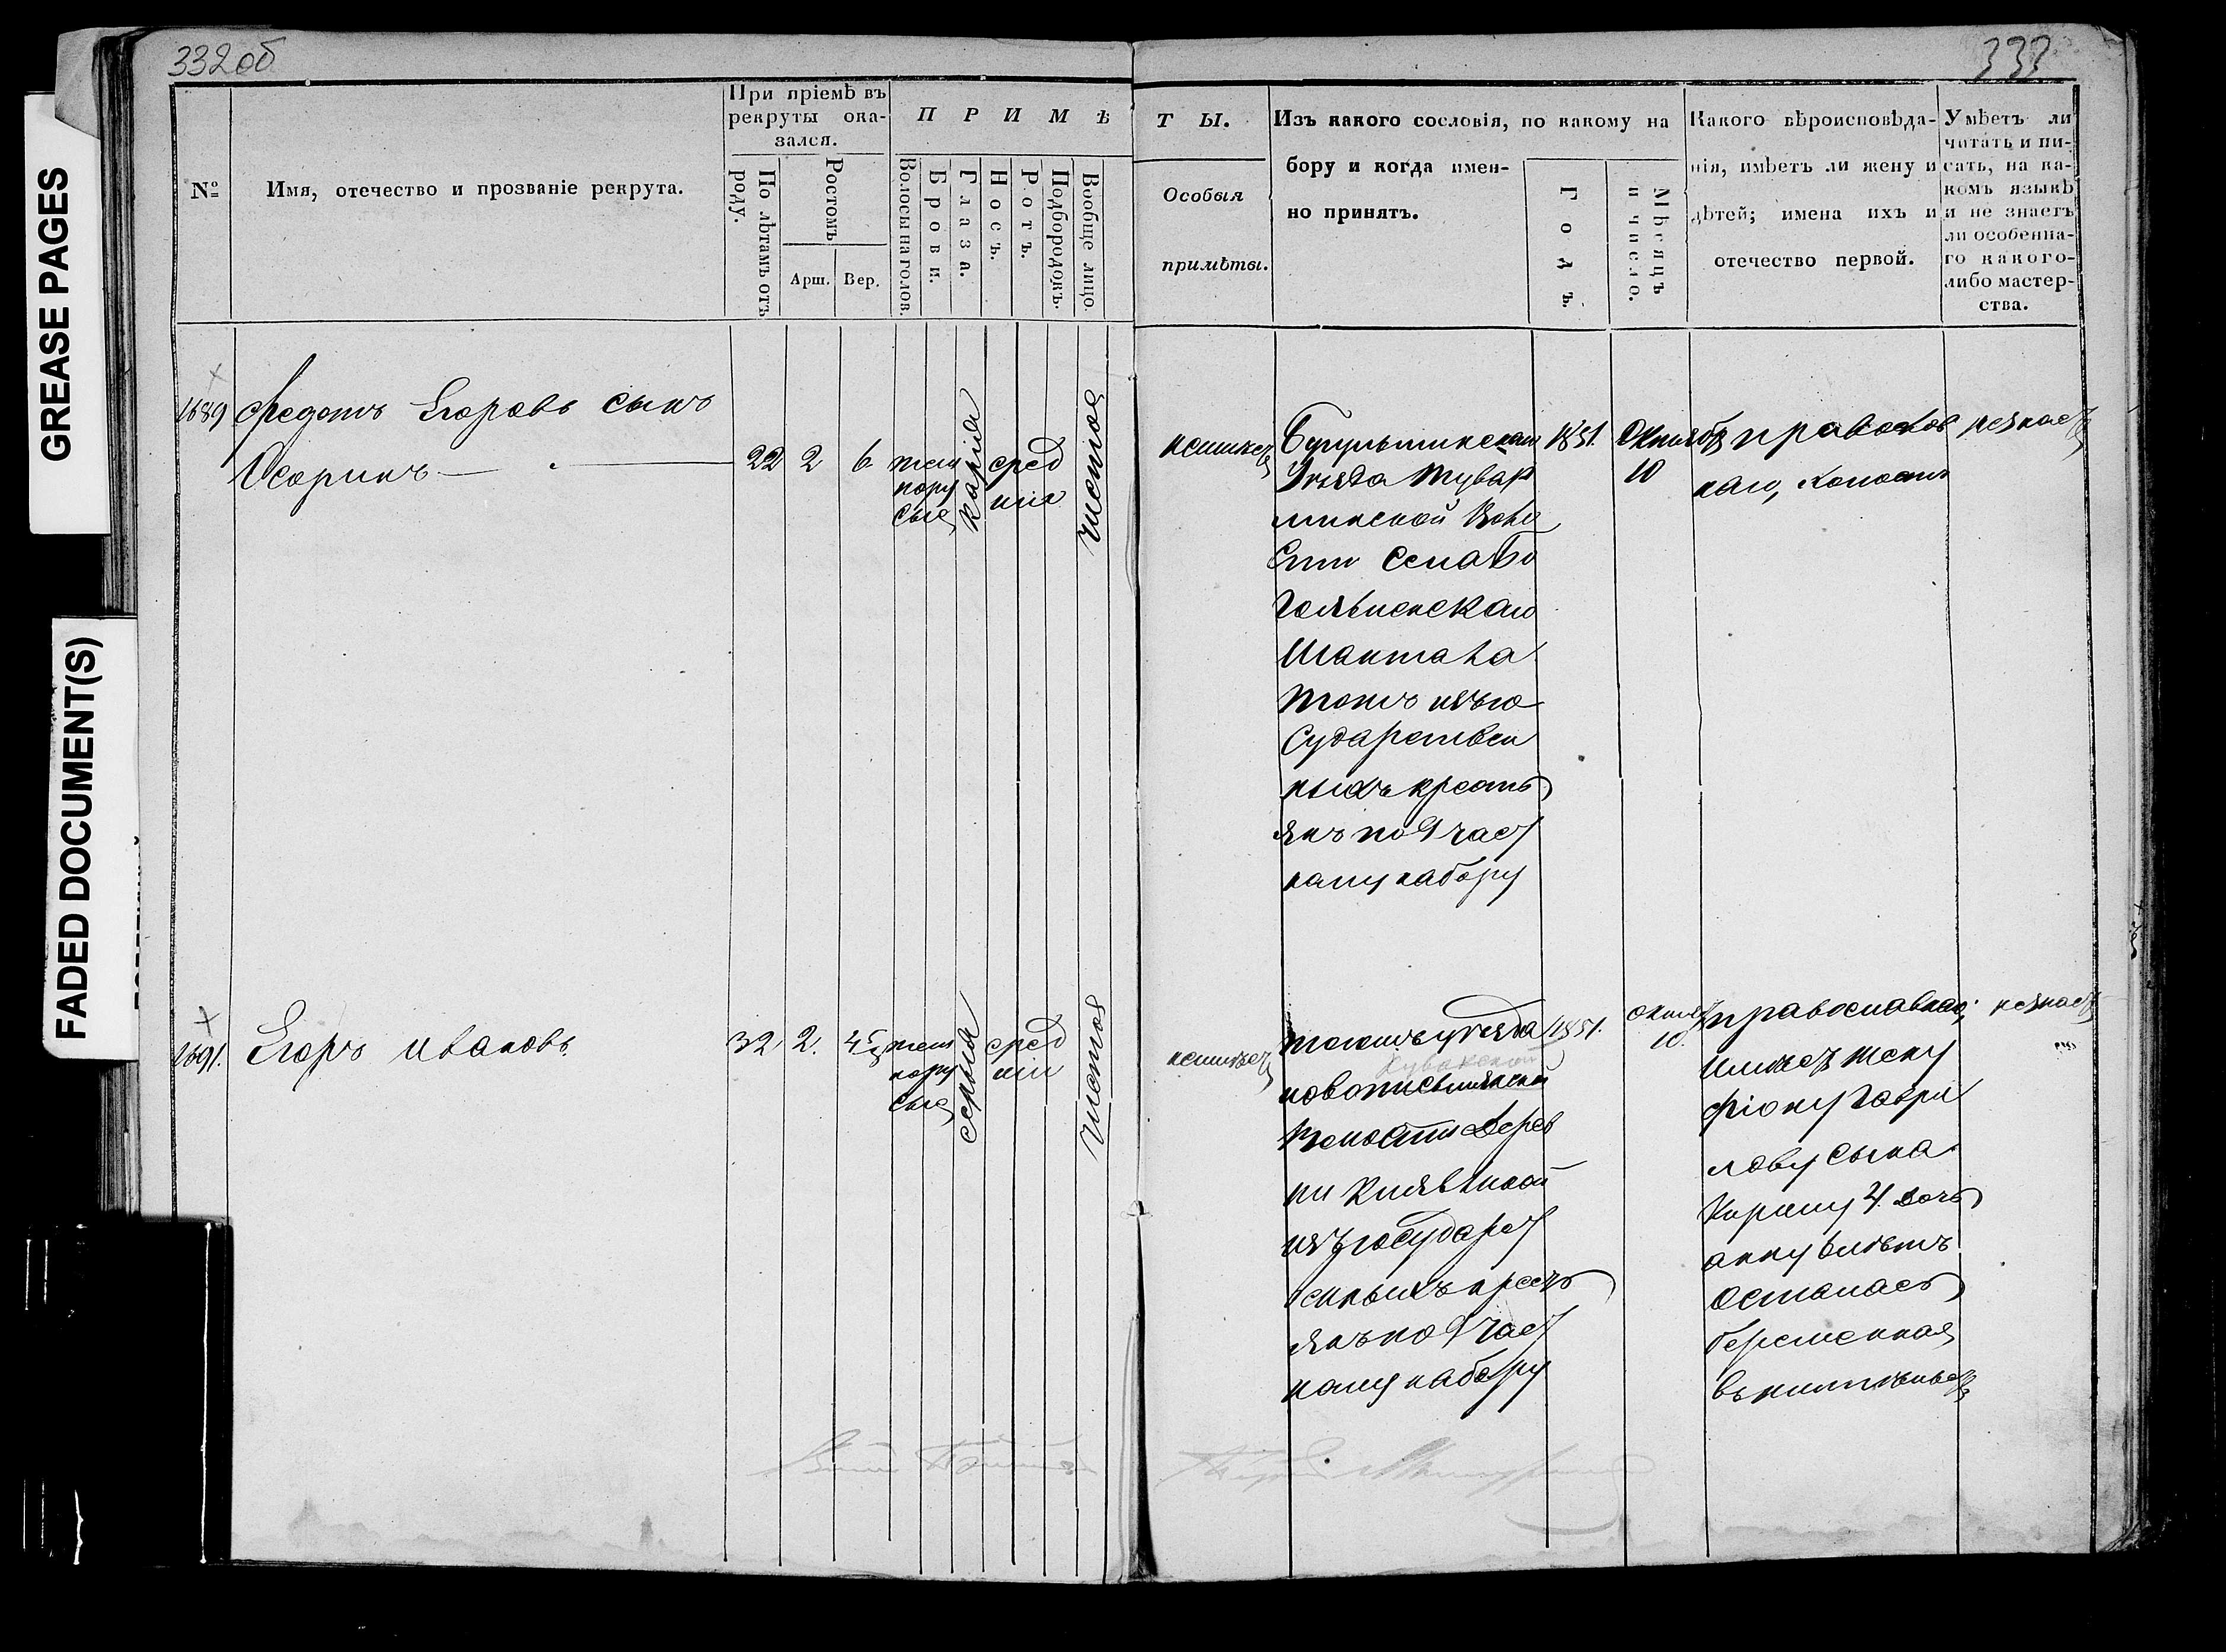 GREASE PAGES
FADED DOCUMENT(S)
332 об
333
№
Имя, отечество и прозваніе рекрута.
При пріемѣ въ
рекруты ока-
зался.
По лѣтамъ отъ
роду.
Ростомъ
Арш.
Вер.
П Р И М Ѣ
Волосы на голов.
Брови.
Глаза.
Носъ.
Ротъ.
Подбородокъ.
Вообще лицо.
Т Ы.
Особыя
примѣты.
Изъ какого сословія, по какому на
бору и когда имен-
но принятъ.
Годъ.
Мѣсяцъ
и число.
Какого вѣроисповѣда-
нія, имѣетъ ли жену и
дѣтей; имена ихъ и
отечество первой.
Умѣетъ ли
читать и пи-
сать, на ка-
комъ языкѣ
и не знаетъ
ли особенна-
го какого-
либо мастер-
ства.
1689
Федотъ Егоровъ сынъ
Осоринъ
22 2 6
тем
нору
сые
карія
сред
ніе
чистое
неимеет
Бугульминскаго
Уезда Тувар
минской Воло
Сти Села Бо
Шантала
Сударствен
ныхъ кресть
янъ по 9 част
ному набору
1851.
Октяб
10
православ
наго, холостъ
незнает
1691.
Егоръ Ивановъ
32 2. 4
тем
нору
сые
серыя
сред
ніи
чистое
неимеет
тогожъ уезда
Кувакской
новописьмянской
Волости Дерев
ни
изъ государст
венныхъ кресть
янъ по 9 част
ному набору
1851.
октяб
10.
православнаго,
имеет жену
Фіону Гаври
лову сына
4 дочь
анну
осталась
беременная
незнает